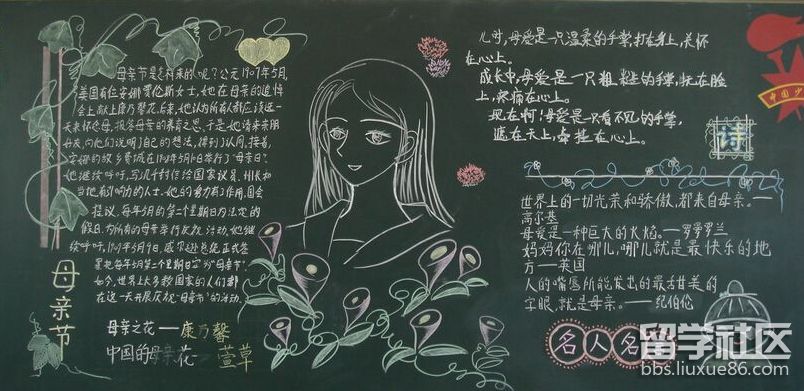 母亲节是怎样来的呢？公元1907年5月,
美国有位安娜
女士，她在母亲的追悼
会上献上康乃馨花.后来,她认为所有人都应该
天来怀念母
母亲的养育之恩。于是,她请来亲朋
好友,向他们说明了自己的想法,得到了认同。接着,
安娜的故乡
在1908年5月10日举行了"母亲日".
她继续呼吁,写几千封信给国家议员、州长和
当地有影响力的人士.她的努力有了作用,国会
提议,每年5月的第二个星期日为法定的
假日,为所有的母亲举行庆祝活动.她继
续呼吁,
5月9日,威尔逊总统正式签
署把每年5月第二个星期日定为"母亲节".
如今,世界上大多数国家的人们都
在这一天开展庆祝"母亲节"的活动.
母亲节
母亲之花——康乃馨
中国的母亲花 萱草
儿时,母爱是一只温柔的手掌,打在身上,关怀
在心上。
成长中,母爱是一只粗糙的手掌,抚在脸
上,疼痛在心上。
现在啊!母爱是一只看不见的手掌,
遮在天上,牵挂在心上。
诗
中国少
世界上的一切光荣和骄傲,都来自母亲。—
高尔基
母爱是一种巨大的火焰。—罗曼罗兰
妈妈你在哪儿,哪儿就是最快乐的地
方——英国
人的嘴唇所能发出的最甜美的
字眼,就是母亲。——纪伯伦
名人名
留学社区
bbs.liuxue86.com